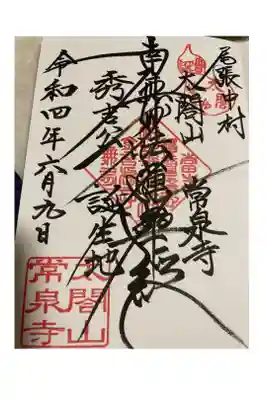 尾張中村
太閤山 常泉寺
南無妙法蓮華経
秀吉公誕生地
令和四年六月九日
太閤山
常泉寺